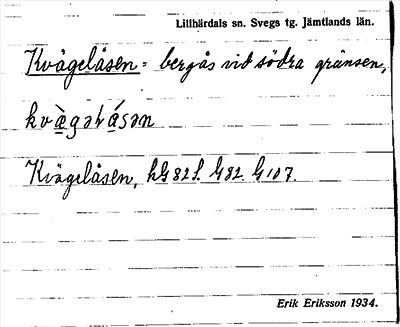 Lillhärdals sn. Svegs tg. Jämtlands län.
Kvägelåsen = bergås vid södra gränsen,
kvàgəƚåsən
Kvägelåsen, hG 82 f. G 82. G 107.
Erik Eriksson 1934.